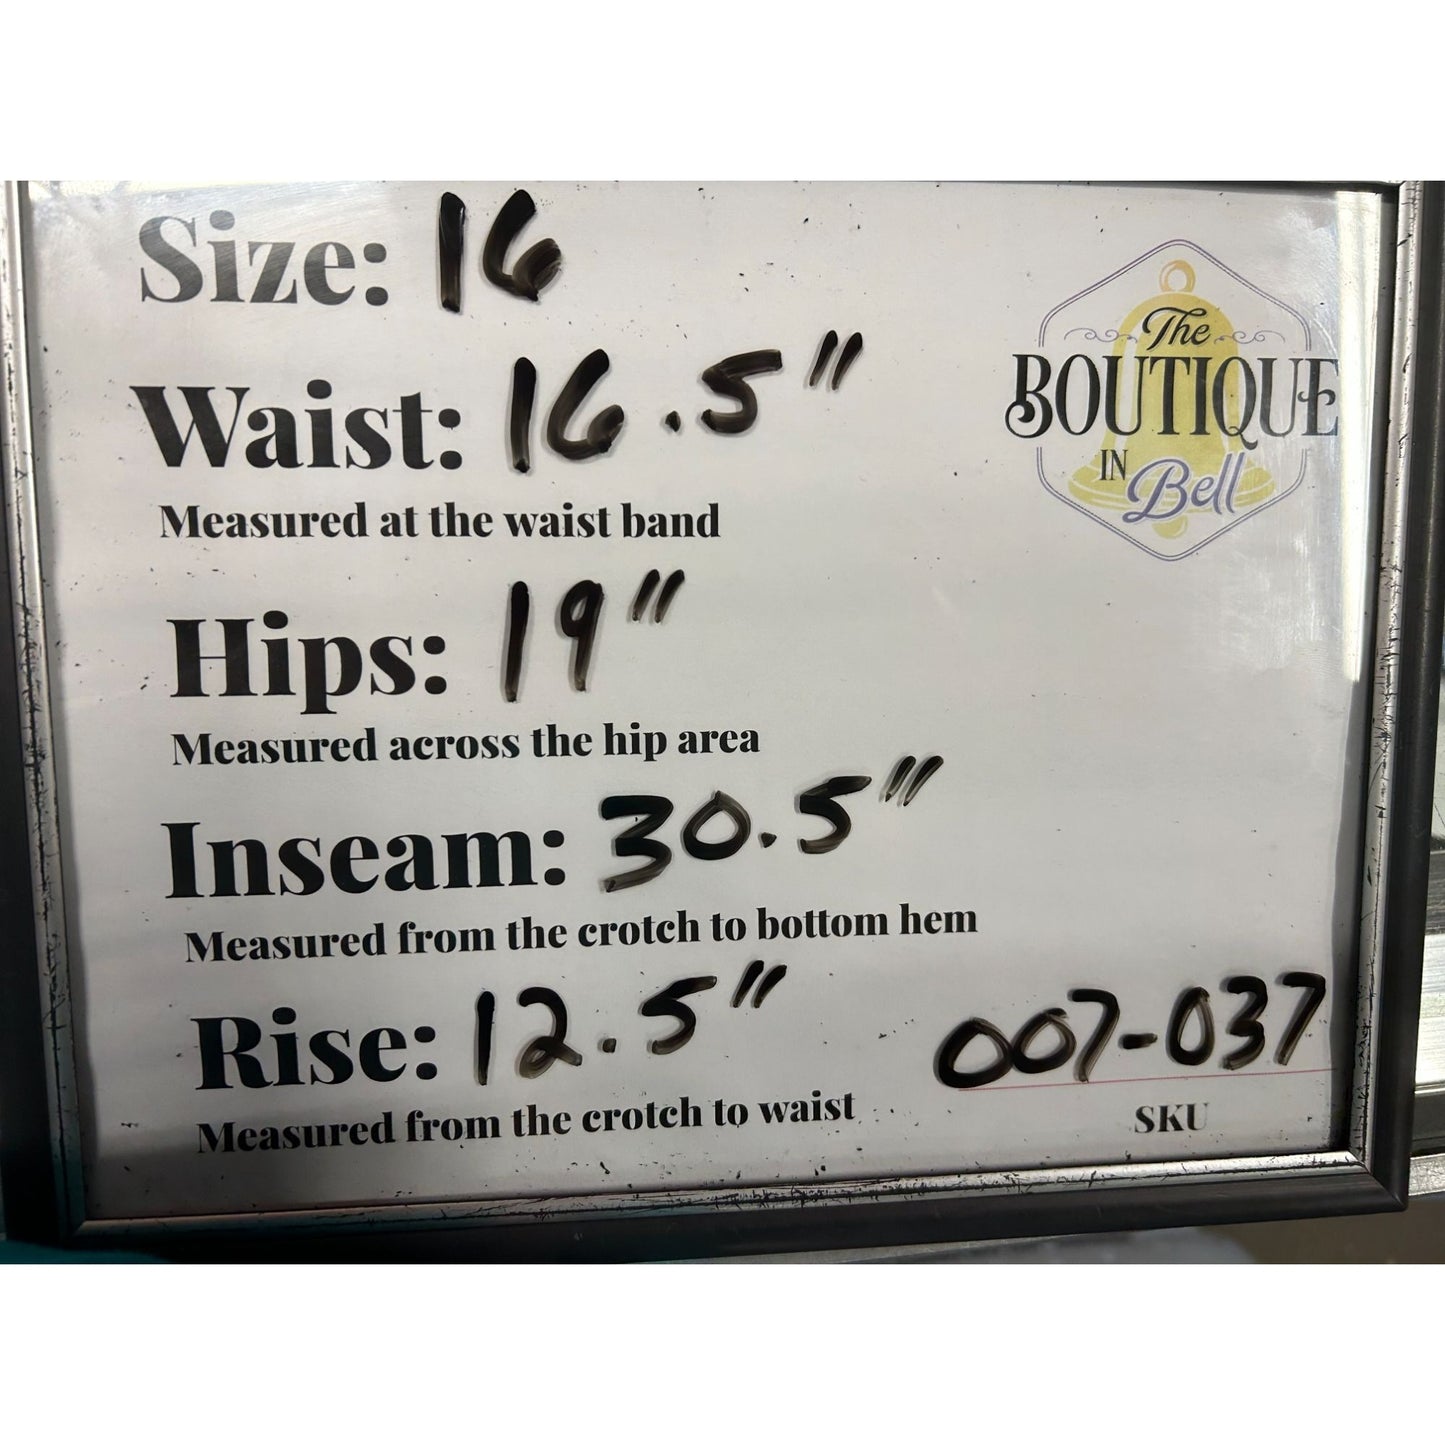 Size: 16
The
BOUTIQUE
IN
Bell
Waist: 16.5"
Measured at the waist band
Hips: 19"
Measured across the hip area
Inseam: 30.5"
Measured from the crotch to bottom hem
Rise: 12.5"
007-037
Measured from the crotch to waist
SKU